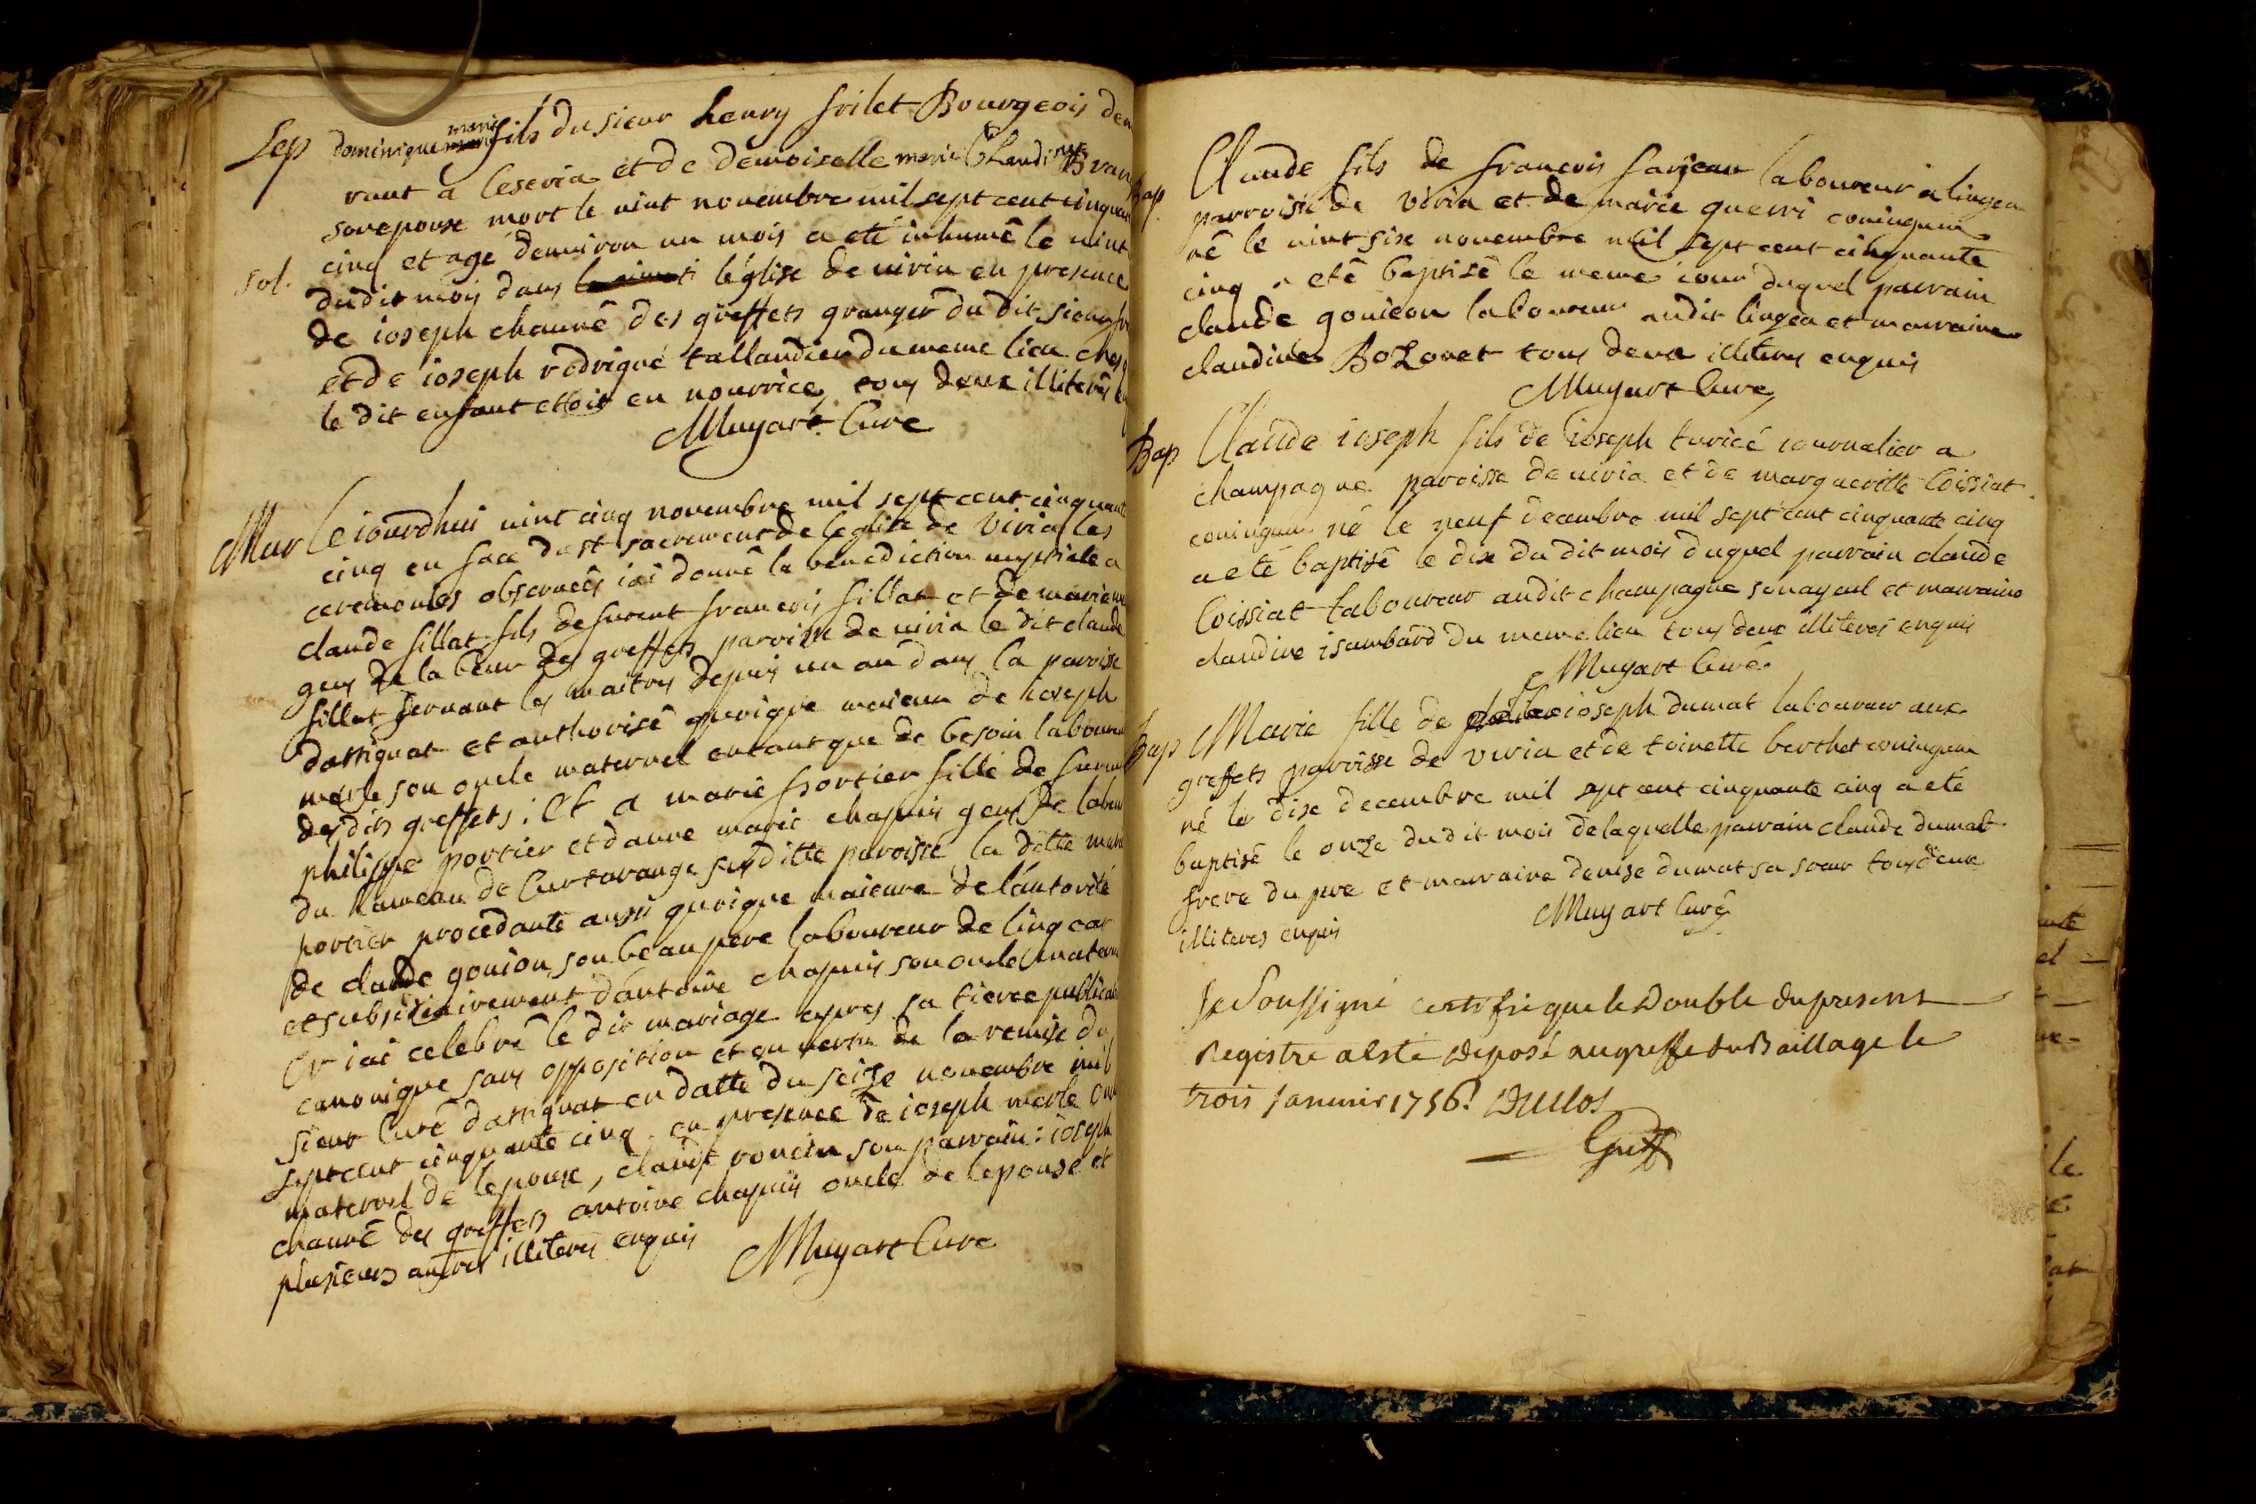 Sep dominique marie fils du sieur henry frilet Bourgeois deu
rant a leseria et de demoiselle marie Claudine Bran
son epouse mort le vint novembre mil sept cent cinquan
cinq et agé denviron un mois a eté inhumé le vint
sol. dudit mois dans léglise de viria en presence
de ioseph chauvé des greffets granger du dit sieur fr
et de ioseph rodrigue tallandier du meme lieu ches
le dit enfant ettoit en nourrice, tous deux illiterés
Muyart Curé
Mar Ce iourdhui vint cinq novembre mil sept cent cinquant
cinq en face du st sacrement de léglise de Viria les
ceremonies observeés iai donné la benediction nuptiale a
claude fillat fils de furent francois fillat et de marie
gens de labeur des greffets parroisse de viria le dit claude
fillat servant les maitres depuis un an dans la paroisse
dattignat et authorisé quoique maieur de ioseph
merle son oncle maternel entant que de besoin laboureu
desdits greffets; Et a marie portier fille de furent
philippe portier et danne marie chapuis gens de labeu
du hameau de Curtarange susditte paroisse la ditte marie
portier procedante aussi quoique maieure de lautorité
de claude gouion son beaupere laboureur de lingear
et subsidiairement dantoine chapuis son oncle matern
Or iai celebré le dit mariage apres sa tierce publicati
canonique sans opposition et en vertu de la remise du
sieur Curé dattignat en datte du seize novembre mil
sept cent cinquante cinq en presence de ioseph merle on
maternel de lepoux, claude poncin son parrain: ioseph
chauvé des greffets antoine chapuis oncle de lepouse et
plusieurs autres illiteres enquis Muyart Cure
Bap. Claude fils de francois farjean laboureur a lingea
parroisse de viria et de marie guerri coniugum
né le vint six novembre mil sept cent cinquante
cinq a eté baptisé le meme iour duquel parrain
claude gouion laboureur audit lingea et marraine
claudine Bozonet tous deux illiteres enquis
Muyart Cure
Bap Claude ioseph fils de ioseph turicé iournalier a
champagne paroisse de viria et de marguerite Coissiat
coniugum né le neuf decembre mil sept cent cinquante cinq
a eté baptisé le dix du dit mois duquel parrain claude
Coissiat laboureur audit champagne son ayeul et marraine
claudine isambard du meme lieu tous deux illiterés enquis
Muyart Curé
Bap Marie fille de ioseph dumat laboureur aux
greffets parroisse de viria et de toinette berthet coniugum
né le dix decembre mil sept cent cinquante cinq a eté
baptisé le onze dudit mois delaquelle parrain claude dumat
frere du pere et marraine denise dumat sa soeur tous deux
illiteres enquis Muyart Curé
Je Soussigné certifie que le Double du present
Registre a esté deposé au greffe du Baillage le
trois Janvier 1756. Duclos
Greff